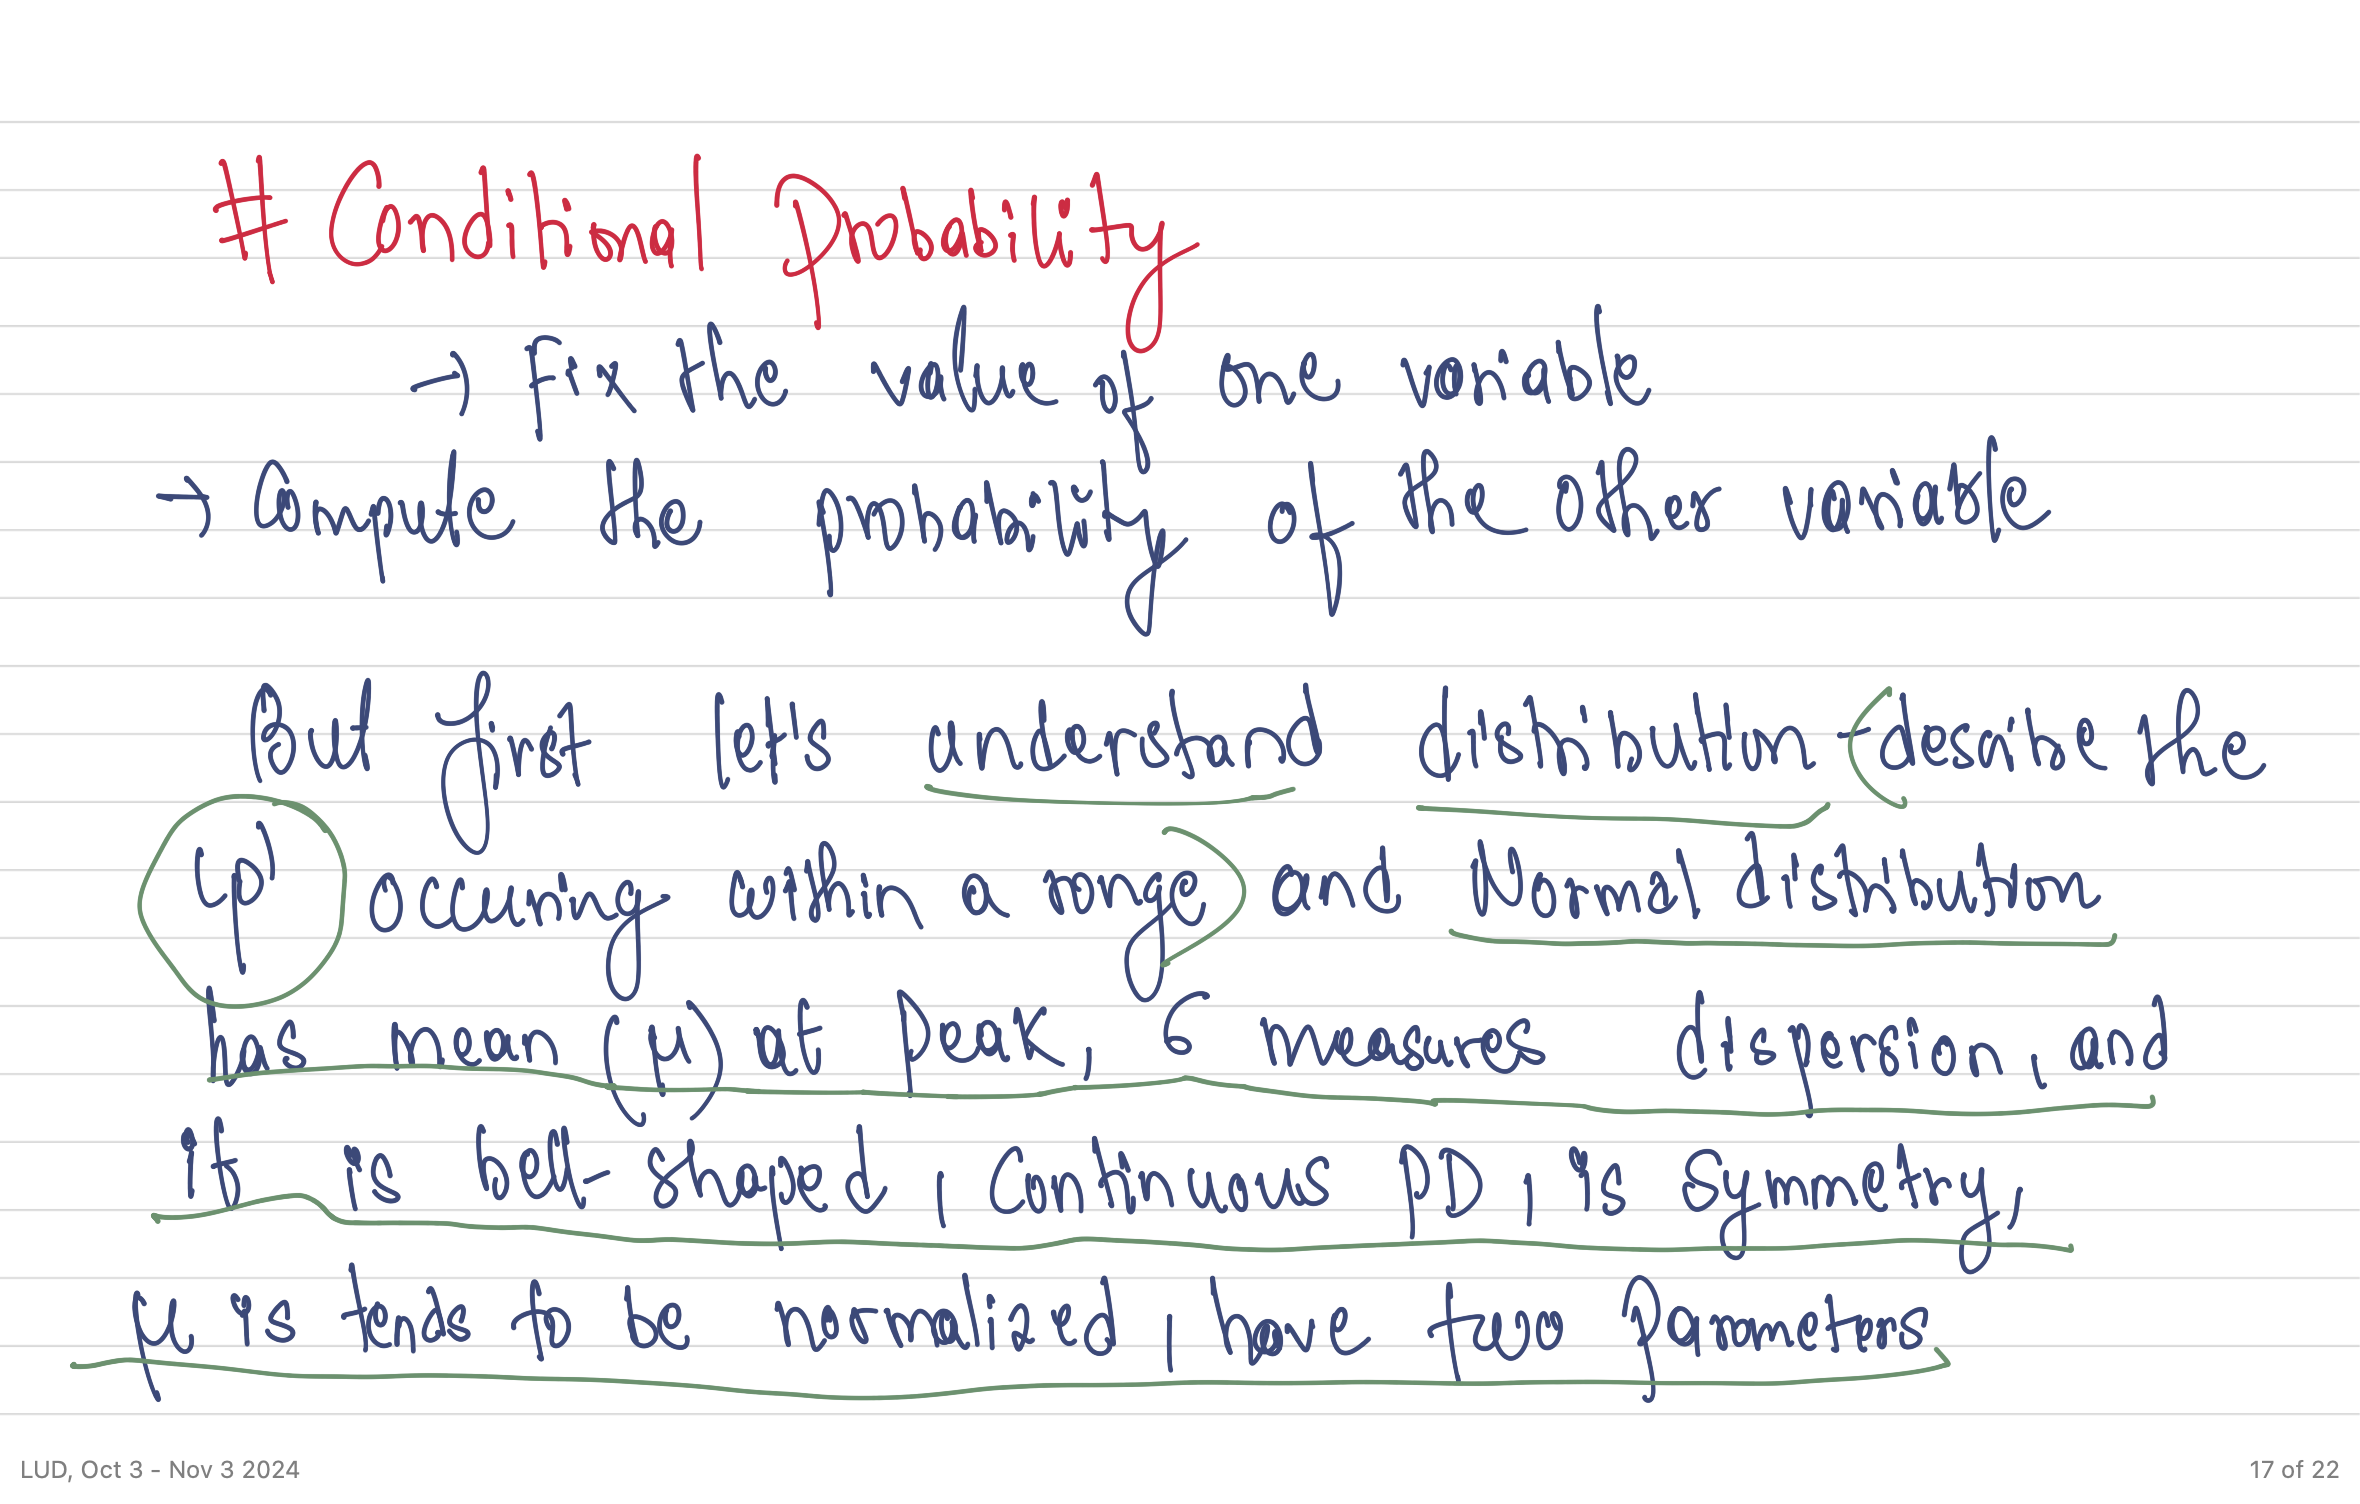 # Conditional Probability
→ Fix the value of one variable
→ Compute the probability of the other variable
But first let's understand distribution (describe the
'p' occuring within a range) and Normal distribution
has mean (μ) at peak, σ measures dispersion, and
it is bell-shaped, Continuous PD, is Symmetry,
μ is tends to be normalized, have two parameters
LUD, Oct 3 - Nov 3 2024
17 of 22